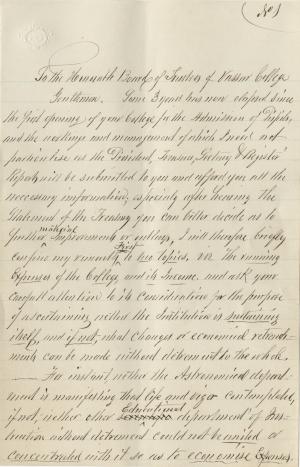 (No 1)
To the Honorable Board of Trustees of Vassar College
Gentlemen. Some 3 years has now elapsed since
the first opening of your College for the Admission of Pupils,
and the workings and management of which I need not
particularise as the President, Treasurer,
Reports will be submitted to you and afford you all the
necessary information, especially after hearing the
Statement of the Treasury you can better decide as to
further material Improvements or outlays, I will therefore briefly
confine my remarks First to two topics, viz the running
Expenses of the College and its Income, and ask your
careful attention to its consideration for the purpose
of ascertaining whether the Institution is sustaining
itself, and if not, what changes or economical retrench-
ments can be made without detriment to the whole.
— For instance, whether the Astronomical depart-
ment is manifesting that life and vigor contemplated,
if not, whether other Educational department of Ins-
truction without detriment could not be united or
concentrated with it so as to economise Expenses.